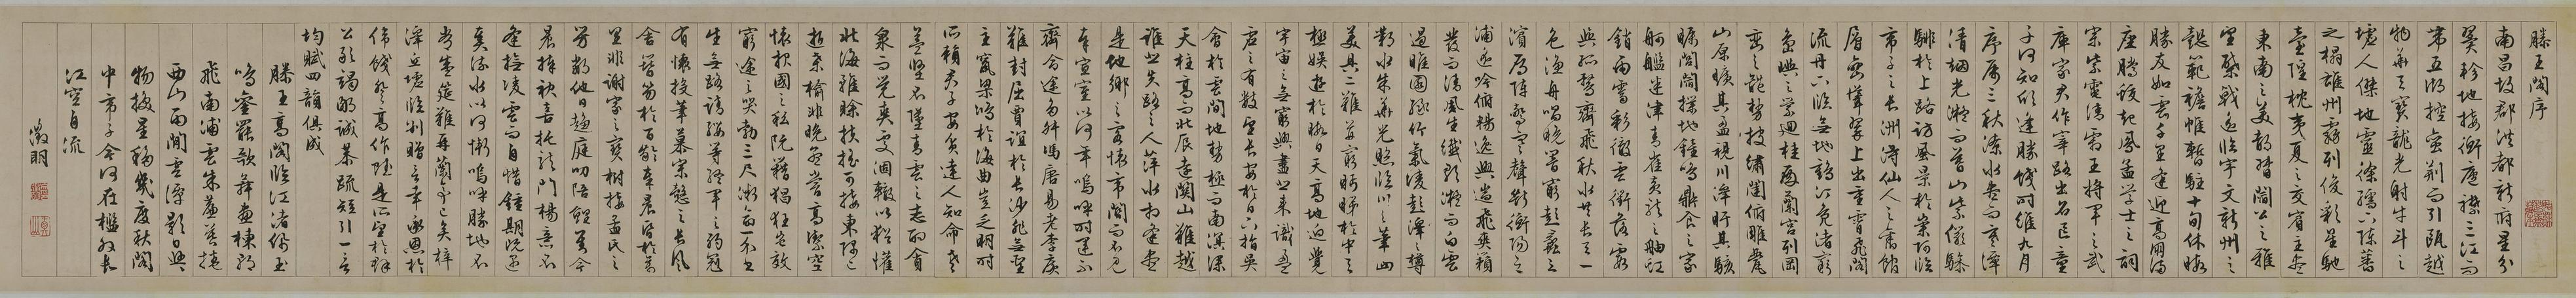 滕王閣序
南昌故郡洪都新府星分
翼軫地接衡廬襟三江而
帶五湖控蠻荊而引甌越
物華天寶龍光射牛斗之
墟人傑地靈徐孺下陳蕃
之榻雄州霧列俊彩星馳
臺隍枕夷夏之交賓主盡
東南之美都督閻公之雅
望棨戟遙臨宇文新州之
懿範襜帷暫駐十旬休暇
勝友如雲千里逢迎高朋滿
座騰蛟起鳳孟學士之詞
宗紫電清霜王將軍之武
庫家君作宰路出名區童
子何知躬逢勝餞時維九月
序屬三秋潦水盡而寒潭
清烟光凝而暮山紫儼驂
騑於上路訪風景於崇阿臨
帝子之長洲得仙人之舊館
層巒聳翠上出重霄飛閣
流丹下臨無地鶴汀鳧渚窮
島嶼之縈迴桂殿蘭宮列岡
巒之體勢披繡闥俯雕甍
山原曠其盈視川澤盱其駭
矚閭閻撲地鐘鳴鼎食之家
舸艦迷津青雀黃龍之舳虹
銷雨霽彩徹雲衢落霞
與孤鶩齊飛秋水共長天一
色漁舟唱晚響窮彭蠡之
濱雁陣驚寒聲斷衡陽之
浦遙吟俯暢逸興遄飛爽籟
發而清風生纖歌凝而白雲
遏睢園綠竹氣凌彭澤之樽
鄴水朱華光照臨川之筆四
美具二難并窮睇眄於中天
極娛遊於暇日天高地迥覺
宇宙之無窮興盡悲來識盈
虛之有數望長安於日下指吳
會於雲間地勢極而南溟深
天柱高而北辰遠關山難越
誰悲失路之人萍水相逢盡
是他鄉之客懷帝閽而不見
奉宣室以何年嗚呼時運不
齊命途多舛馮唐易老李廣
難封屈賈誼於長沙非無聖
主竄梁鴻於海曲豈乏明時
所賴君子安貧達人知命老
益堅不墜青雲之志酌貪
泉而覺爽處涸轍以猶懽
北海雖賒扶搖可接東隅已
逝桑榆非晚孟嘗高潔空
懷報國之私阮籍猖狂豈效
窮途之哭勃三尺微命一介書
生無路請纓等終軍之弱冠
有懷投筆慕宗慤之長風
舍簪笏於百齡奉晨昏於萬
里非謝家之寶樹接孟氏之
芳鄰他日趨庭叨陪鯉對今
晨捧袂喜托龍門楊意不
逢撫凌雲而自惜鍾期既遇
奏流水以何慚嗚呼勝地不
常盛筵難再蘭亭已矣梓
澤丘墟臨別贈言幸承恩於
偉餞登高作賦是所望於群
公敢竭鄙誠恭疏短引一言
均賦四韻俱成
滕王高閣臨江渚佩玉
鳴鑾罷歌舞畫棟朝
飛南浦雲朱簾暮捲
西山雨閒雲潭影日悠悠
物換星移幾度秋閣
中帝子今何在檻外長
江空自流
徵明